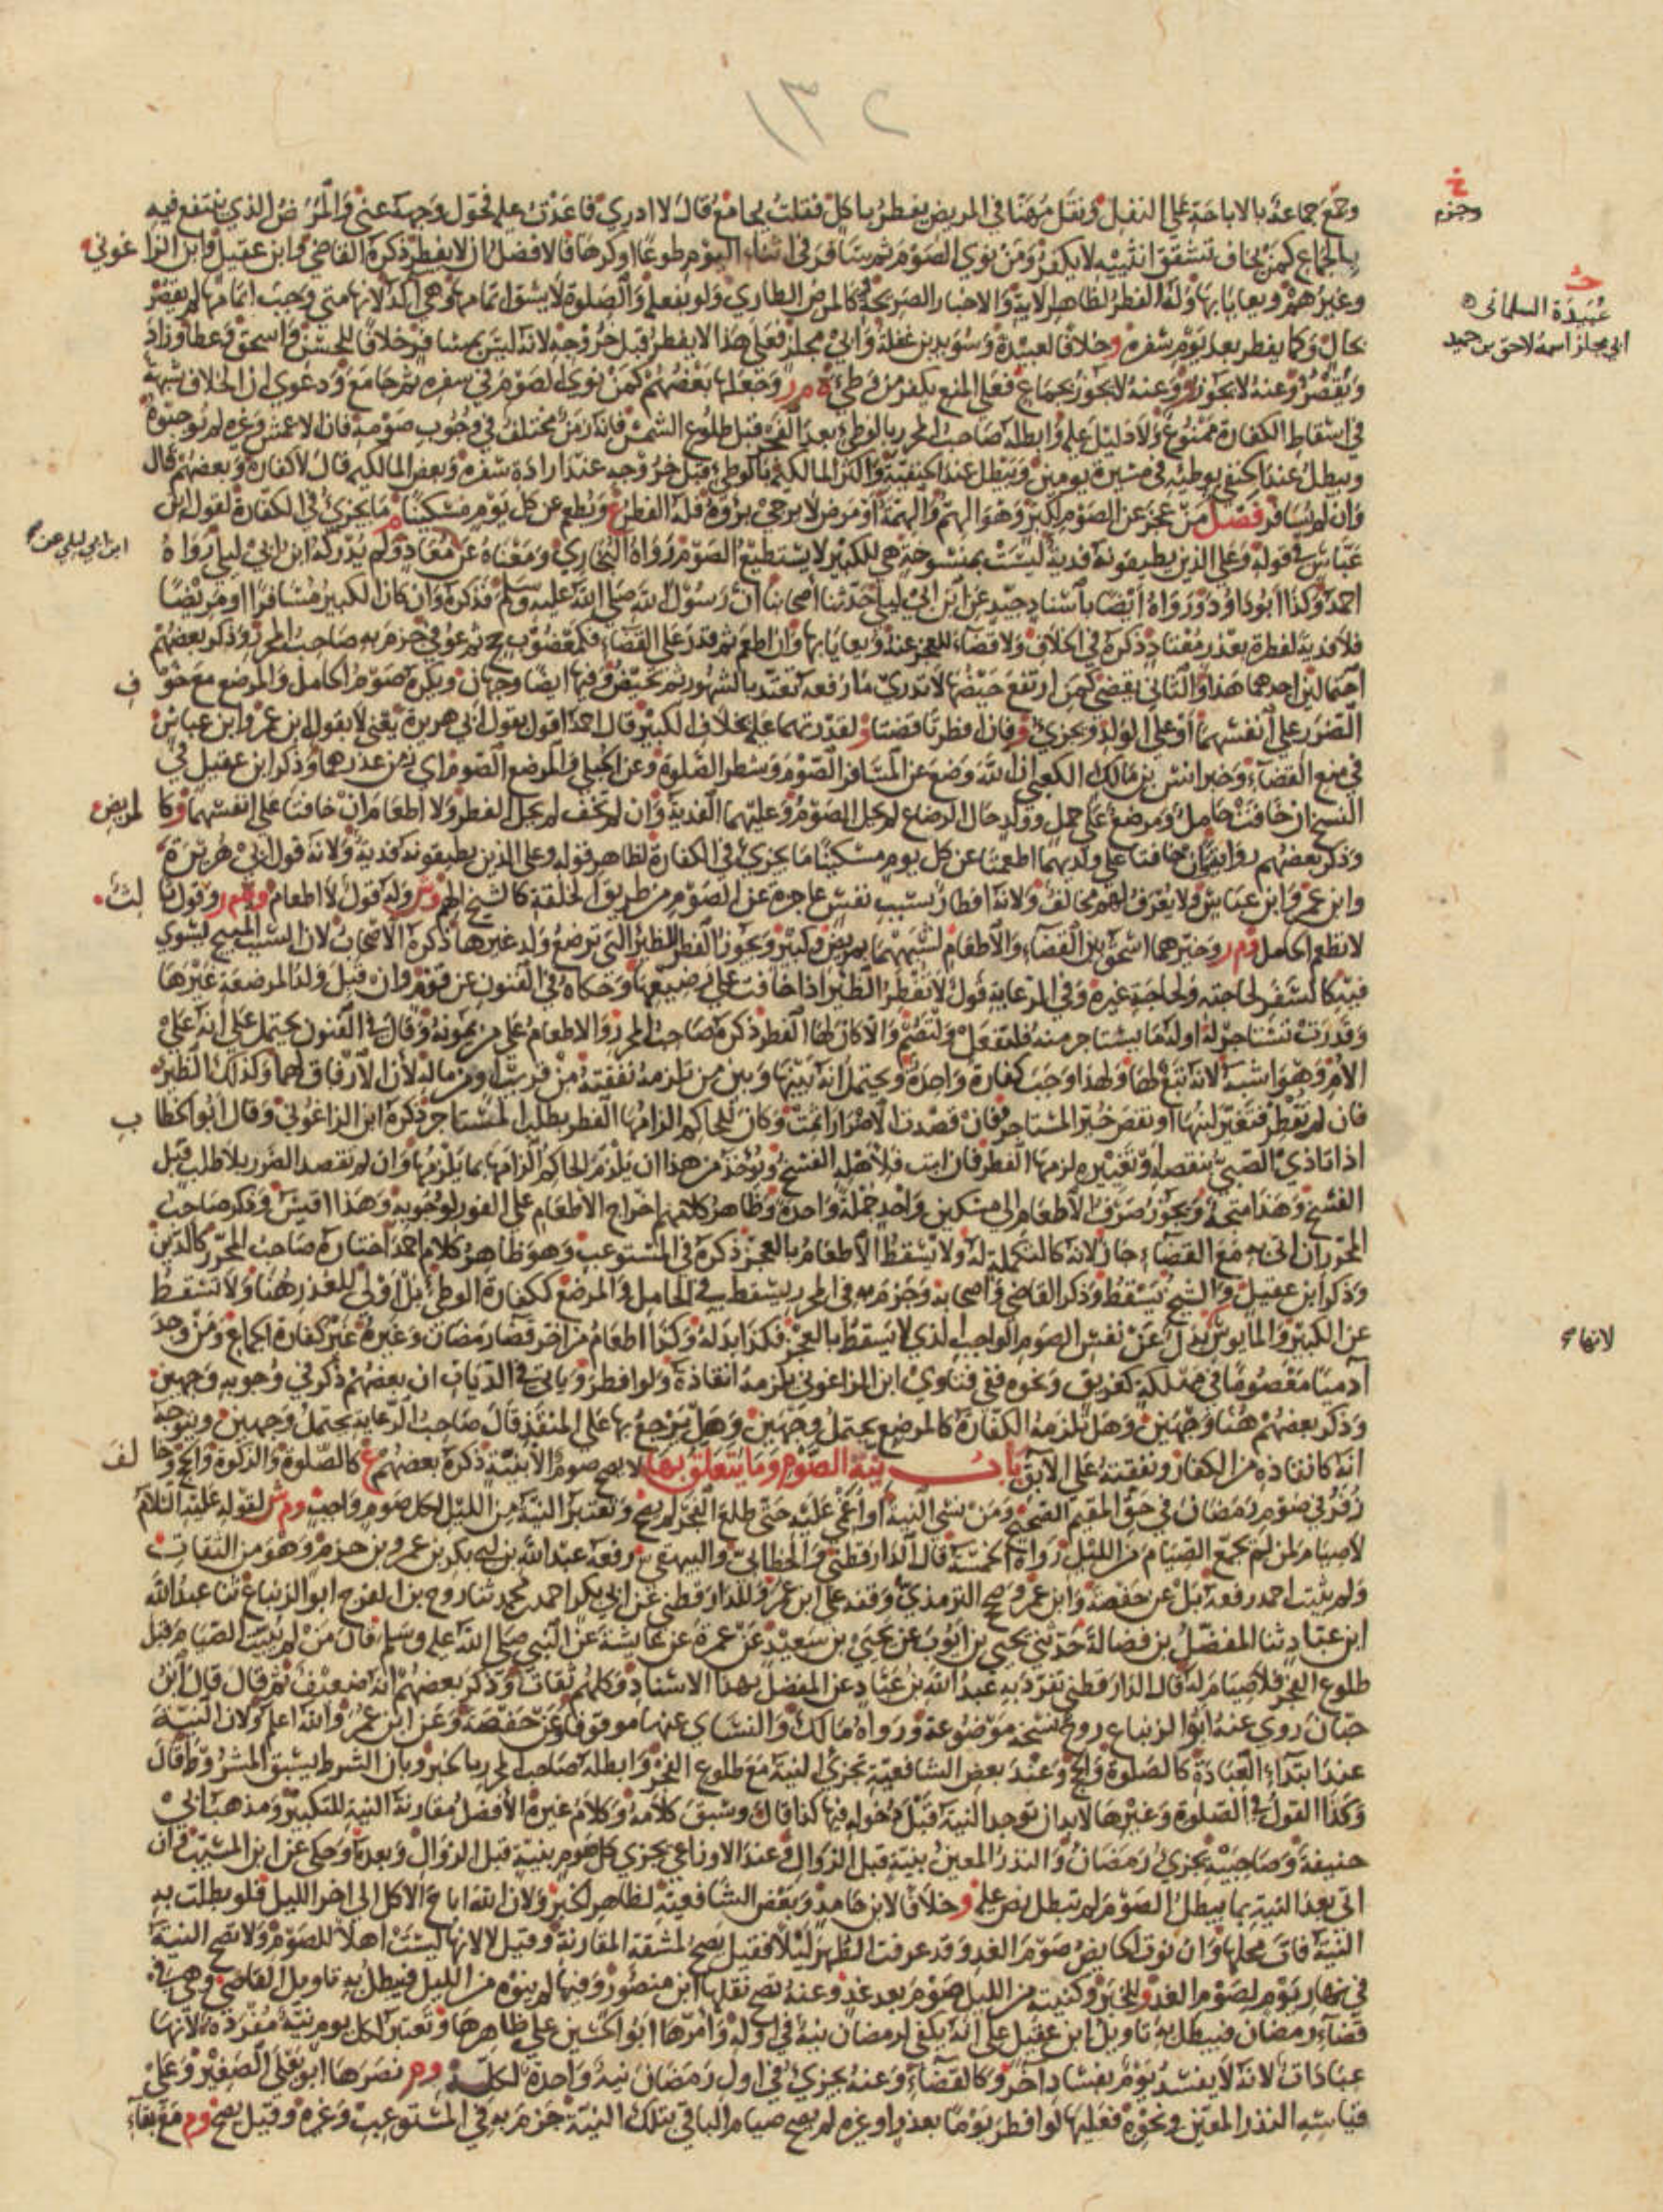 ١٣٢
وجمع جماعة بالاباحة على النفل ونقل مهنا في المريض يفطر باكل فقلت يجامع قال لا ادري فاعدت عليه فحول وجهه عني والمرض الذي ينتفع فيه
بالجماع كمن يخاف تشقق انثييه لا يكفر ومن نوى الصوم ثم سافر في اثناء اليوم طوعا او كرها فالافضل ان لا يفطر ذكره القاضي وابن عقيل وابن الزاغوني
وغيرهم ويعايا بها وله الفطر لظاهر الاية والاخبار الصريحة كالمرض الطاري ولو بفعله والصلوة لا يشق اتمامها وهي آكد لانها متى وجب اتمامها لم تقصر
بحال وكما يفطر بعد يوم سفره وخلافا لعبيدة وسويد بن غفلة وابي مجلز فعلى هذا لا يفطر قبل خروجه لانه ليس بمسافر خلافا للحسن واسحق وعطا وزاد
ويقصر وعنه لا يجوز وعنه لا يجوز بجماع فعلى المنع يكفر من وطئ وجعلها بعضهم كمن نوى الصوم في سفره ثم جامع ودعوى ان الخلاف شبهة
في اسقاط الكفارة ممنوع ولا دليل عليه وابطله صاحب المحرر بالوطئ بعد الفجر قبل طلوع الشمس فانه زمن مختلف في وجوب صومه فان الاعمش وغيره لم يوجبوه
ويبطل عند الحنفي بوطئه في مسيرة يومين ويبطل عند الحنفية واكثر المالكية بالوطئ قبل خروجه عند ارادة سفره وبعض المالكية قال لا كفارة وبعضهم قال
وان لم يسافر فصل من عجز عن الصوم لكبر وهو الهم والهمة او مرض لا يرجى برؤه فله الفطر ع ويطعم عن كل يوم مسكينا ما يجزئ في الكفارة لقول ابن
عباس في قوله وعلى الذين يطيقونه فدية ليست بمنسوخة هي للكبير لا يستطيع الصوم رواه البخاري ومعناه عن معاذ ولم يدركه ابن ابي ليلى رواه
احمد وكذا ابو داود ورواه ايضا باسناد جيد عن ابن ابي ليلى حدثنا اصحابنا ان رسول الله صلى الله عليه وسلم فذكره وان كان الكبير مسافرا او مريضا
فلا فدية لفطره بعذر معتاد ذكره في الخلاف ولا قضاء للعجز عنه ويعايا بها وان اطعم ثم قدر على القضاء فكمعضوب حج ثم عوفي جزم به صاحب المحرر وذكر بعضهم
احتمالين احدهما هذا والثاني يقضي كمن ارتفع حيضها لا تدري ما رفعه تعتد بالشهور ثم تحيض وفيها ايضا وجهان ويكره صوم الحامل والمرضع مع خوف
الضرر على انفسهما او على الولد ويجزي وفان افطرتا قضتا ولقدرتهما عليه بخلاف الكبير قال احمد اقول بقول ابي هريرة يعني لا بقول ابن عمر وابن عباس
في منع القضاء وخبر انس بن مالك الكعبي ان الله وضع عن المسافر الصوم وشطر الصلوة وعن الحبلى والمرضع الصوم اي زمن عذرهما وذكر ابن عقيل في
النسخ ان خافت حامل ومرضع على حمل وولد حال الرضاع لم يحل الصوم وعليهما الفدية وان لم تخف لم يحل الفطر ولا اطعام ان خافتا على انفسهما وكالمريض
وذكر بعضهم رواية وان خافتا على ولديهما اطعمتا عن كل يوم مسكينا ما يجزئ في الكفارة لظاهر قوله وعلى الذين يطيقونه فدية ولانه قول ابي هريرة
وابن عمر وابن عباس ولا يعرف لهم مخالف ولانه افطار بسبب نفس عاجزة عن الصوم من طريق الخلقة كالشيخ الهم وش وله قول لا اطعام وم ر وقول ثالث
لا تطعم الحامل وم ر وخيرهما اسحق بين القضاء والاطعام لشبههما بمريض وكبير ويجوز الفطر للظئر التي ترضع ولد غيرها ذكره الاصحاب لان السبب المبيح يستوي
فيه كالسفر لحاجته ولحاجة غيره وفي الرعاية قول لا تفطر الظئر اذا خافت على رضيعها وحكاه في الفنون عن قوم وان قبل ولد المرضعة غيرها
وقدرت تستاجر له او له ما يستاجر منه فلتفعل ولتصم والا كان لها الفطر ذكره صاحب المحرر والاطعام على من يمونه وقال في الفنون يحتمل على انه على
الام وهو اشبه لانه تبع لها ولهذا وجب كفارة واحدة ويحتمل انه بينها وبين من تلزمه نفقته من قريب او من ماله لان الارفاق لهما وكذلك الظئر
فان لم تفطر فتغير لبنها او نقص خير المستاجر فان قصدت الاضرار اثمت وكان للحاكم الزامها الفطر بطلب المستاجر ذكره ابن الزاغوني وقال ابو الخطاب
اذا تاذى الصبي بنقصه وتغييره لزمها الفطر فان ابت فلاهله الفسخ ويؤخذ من هذا ان يلزم الحاكم الزامها بما يلزمها وان لم تقصد الضرر بلا طلب قبل
الفسخ وهذا متجه ويجوز صرف الاطعام الى مسكين واحد جملة واحدة وظاهر كلامهم اخراج الاطعام على الفور لوجوبه وهذا اقيس وذكر صاحب
المحرر ان اتى به مع القضاء جاز لانه كالتكملة له ولا يسقط الاطعام بالعجز ذكره في المستوعب وهو ظاهر كلام احمد اختاره صاحب المحرر كالدين
وذكر ابن عقيل والشيخ يسقط وذكر القاضي واصحابه وجزم به في المحرر يسقط في الحامل والمرضع ككفارة الوطئ بل اولى للعذر هنا ولا تسقط
عن الكبير والمايوس بدل عن نفس الصوم الواجب الذي لا يسقط بالعجز فكذا بدله وكذا اطعام من اخر قضاء رمضان وغيره غير كفارة الجماع ومن وجد
آدميا معصوما في مهلكة كغريق ونحوه ففي فتاوي ابن الزاغوني يلزمه انقاذه ولو افطر وياتي في الديات ان بعضهم ذكر في وجوبه وجهين
وذكر بعضهم هنا وجهين وهل تلزمه الكفارة كالمرضع يحتمل وجهين وهل يرجع بها على المنقذ قال صاحب الرعاية يحتمل وجهين ويتوجه
انه كانقاذه من الكفار ونفقته على الآبق باب نية الصوم وما يتعلق بها لا يصح صوم الا بنية ذكره بعضهم ع كالصلوة والزكوة والحج وخالف
زفر في صوم رمضان في حق المقيم الصحيح ومن نسي النية او اغمي عليه حتى طلع الفجر لم يصح وتعتبر النية من الليل لكل صوم واجب وم ش لقوله عليه السلام
لا صيام لمن لم يجمع الصيام من الليل رواه الخمسة قال الدارقطني والخطابي والبيهقي رفعه عبد الله بن ابي بكر بن عمرو بن حزم وهو من الثقات
ولم يثبت احمد رفعه بل عن حفصة وابن عمر وصحح الترمذي وقفه على ابن عمر وللدارقطني عن ابي بكر احمد بن محمد ثنا روح بن الفرج ابو الزنباع ثنا عبد الله
ابن عباد ثنا المفضل بن فضالة حدثني يحيى بن ايوب عن يحيى بن سعيد عن عمرة عن عائشة عن النبي صلى الله عليه وسلم قال من لم يبيت الصيام قبل
طلوع الفجر فلا صيام له قال الدارقطني تفرد به عبد الله بن عباد عن المفضل بهذا الاسناد وكلهم ثقات وذكر بعضهم انه ضعيف ثم قال قال ابن
حبان روى عنه ابو الزنباع روح نسخة موضوعة ورواه مالك والنساي عنها موقوفا وعن حفصة وعن ابن عمر والله اعلم ولان النية
عند ابتداء العبادة كالصلوة والحج وعند بعض الشافعية تجزئ النية مع طلوع الفجر وابطله صاحب المحرر بالخبر وبان الشرط يسبق المشروط قال
وكذا القول في الصلوة وغيرها لا بد ان توجد النية قبل دخوله فيها كذا قال وسبق كلامه وكلام غيره الافضل مقارنة النية للتكبير ومذهب ابي
حنيفة وصاحبيه يجزئ رمضان والنذر المعين بنية قبل الزوال وعند الاوزاعي يجزي كل صوم بنية قبل الزوال وبعده وحكى عن ابن المسيب وان
اتى بعد النية بما يبطل الصوم لم تبطل نص عليه وخلافا لابن حامد وبعض الشافعية لظاهر الخبر ولان الله اباح الاكل الى اخر الليل فلو بطلت به
النية فات محلها وان نوت الحايض صوم الغد وقد عرفت الطهر ليلا فقيل يصح لمشقة المقارنة وقيل لا لانها ليست اهلا للصوم ولا تصح النية
في نهار يوم لصوم الغد وللخبر وكنيته من الليل صوم بعد غد وعنه تصح نقلها ابن منصور وفيها لم ينوه من الليل فبطل به تاويل القاضي وهي في
قضاء رمضان فيبطل به تاويل ابن عقيل على انه يكفي لرمضان نية في اوله وامرها ابو الحسين على ظاهرها وتعتبر لكل يوم نية مفردة لانها
عبادات لانه لا يفسد يوم بفساد آخر وكالقضاء وعنه يجزي في اول رمضان نية واحدة لكله وم نصرها ابو يعلى الصغير وعلى
قياسه النذر المعين ونحوه فعليها لو افطر يوما بعذر او غيره لم يصح صيام الباقي بتلك النية جزم به في المستوعب وغيره وقيل يصح وم مع بقاء
خ
وجزم
عبيدة السلماني
ابي مجلز اسمه لاحق بن حميد
ابن ابي ليلى عن
لانها